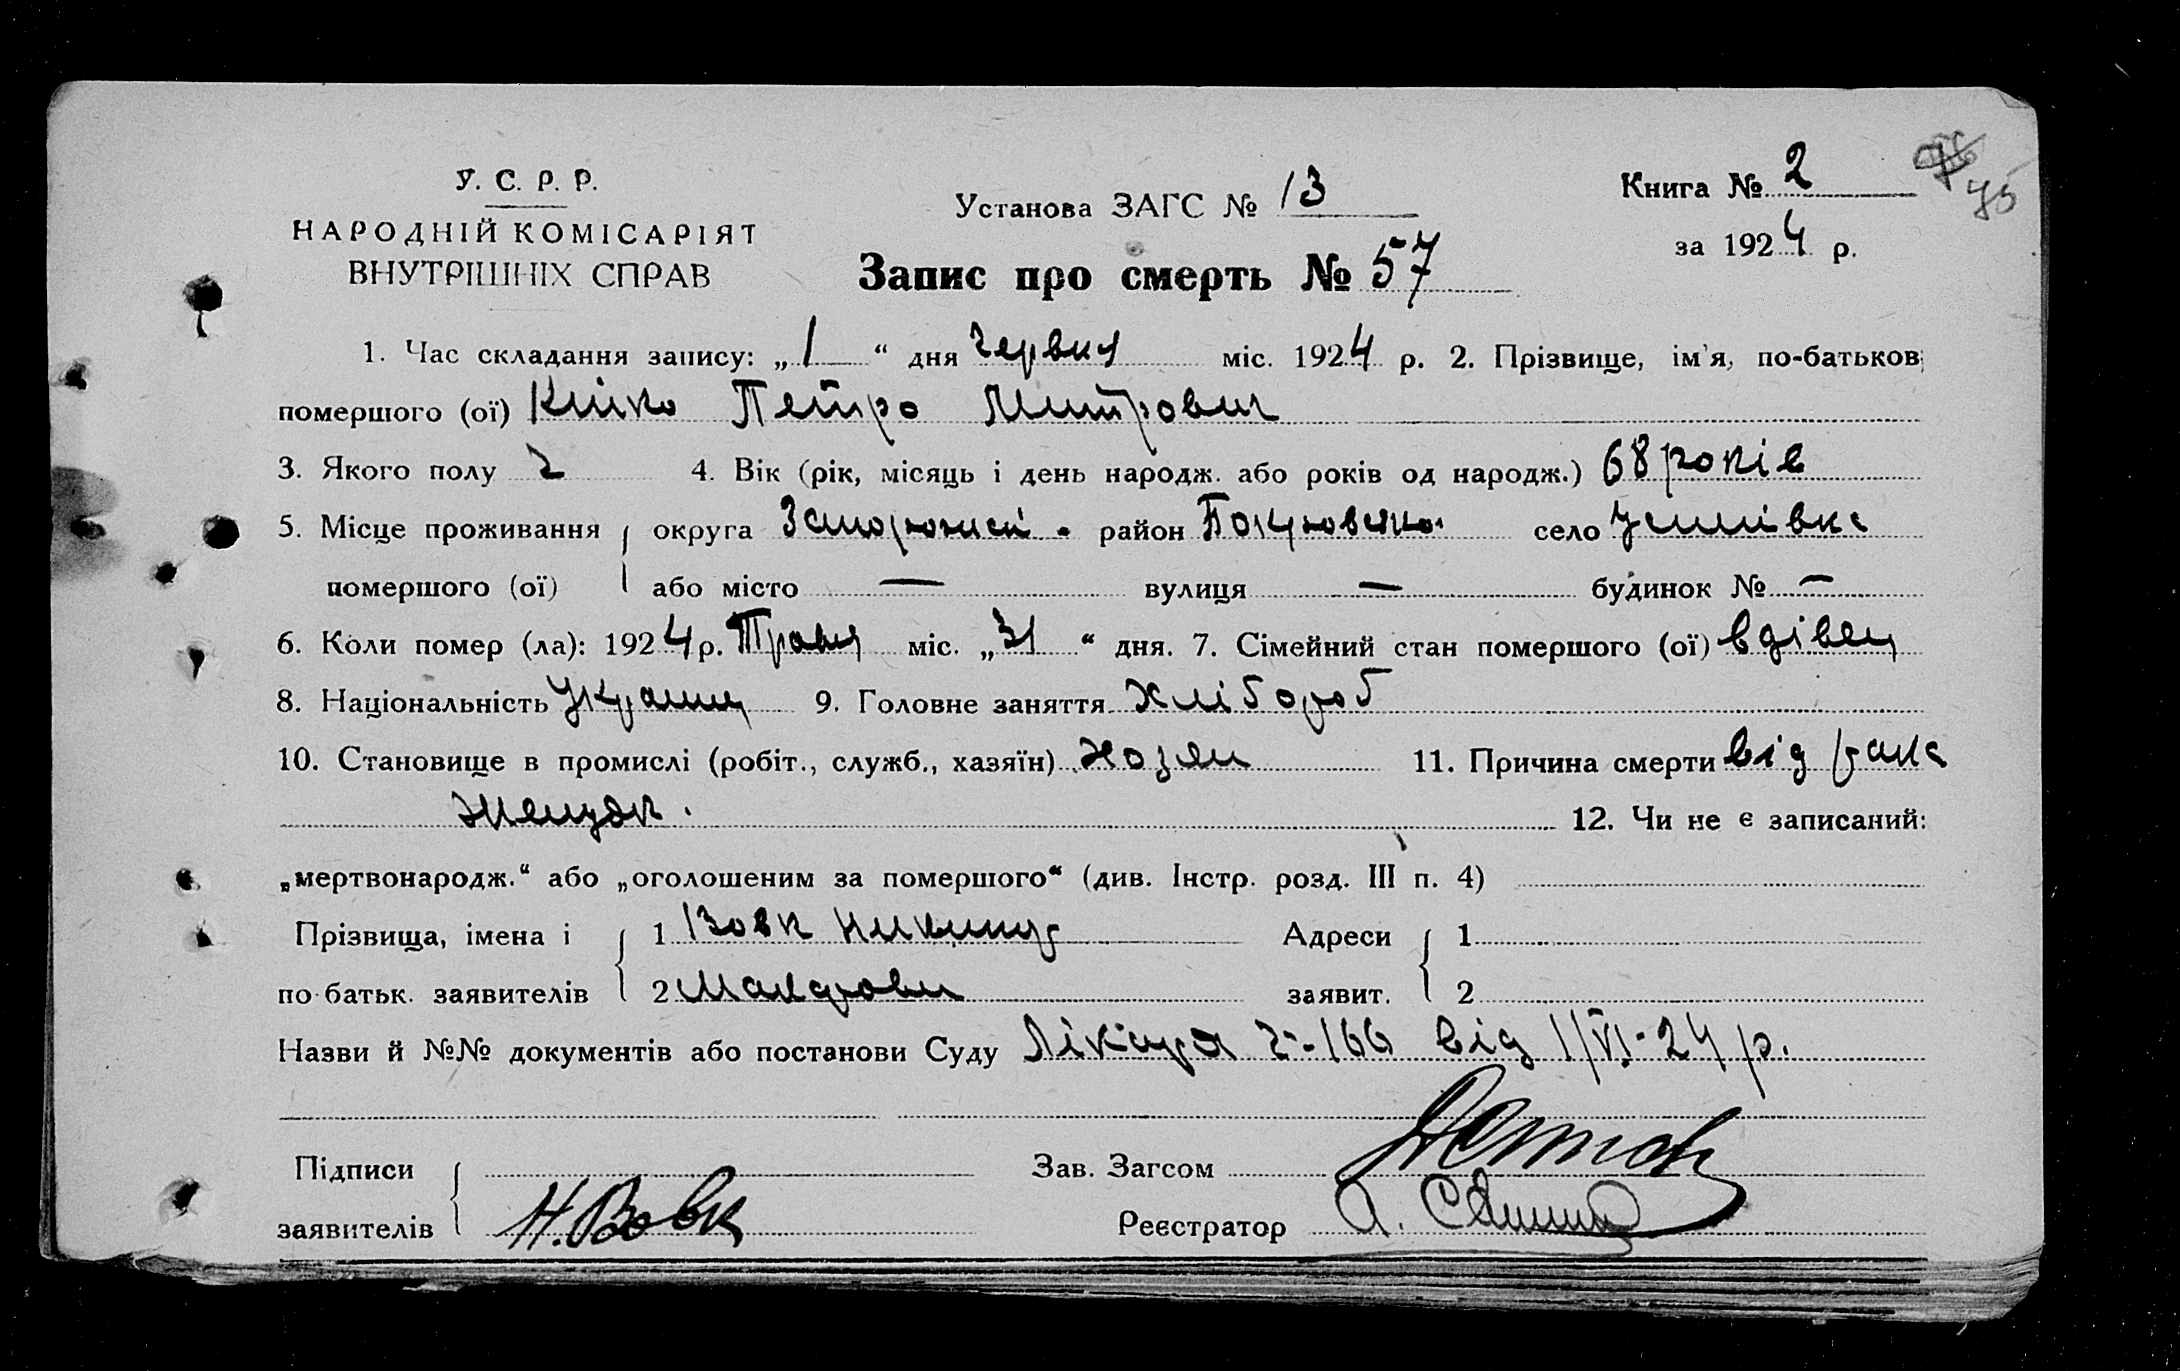 У. С. Р. Р.
НАРОДНІЙ КОМІСАРІЯТ
ВНУТРІШНІХ СПРАВ
Установа ЗАГС № 13
Книга № 2
75
за 1924 р.
Запис про смерть № 57
1. Час складання запису: „1“ дня червня міс. 1924 р. 2. Прізвище, ім'я, по-батькові
помершого (ої) Петро Митрович
3. Якого полу ч 4. Вік (рік, місяць і день народж. або років од народж.) 68 років
5. Місце проживання округа район село
помершого (ої) або місто — вулиця — будинок № —
6. Коли помер (ла): 1924 р. Травня міс. „31“ дня. 7. Сімейний стан помершого (ої) вдівец
8. Національність Украинец 9. Головне заняття Хлібороб
10. Становище в промислі (робіт., служб., хазяїн) хозяин 11. Причина смерти від рака
желудк. 12. Чи не є записаний:
„мертвонародж.“ або „оголошеним за помершого“ (див. Інстр. розд. III п. 4)
Прізвища, імена і 1 Вовк Адреси 1
по батьк. заявителів 2 заявит. 2
Назви й №№ документів або постанови Суду Лікаря 166 від 1/VI-24 р.
Підписи Зав. Загсом
заявителів Н. Вовк Реєстратор